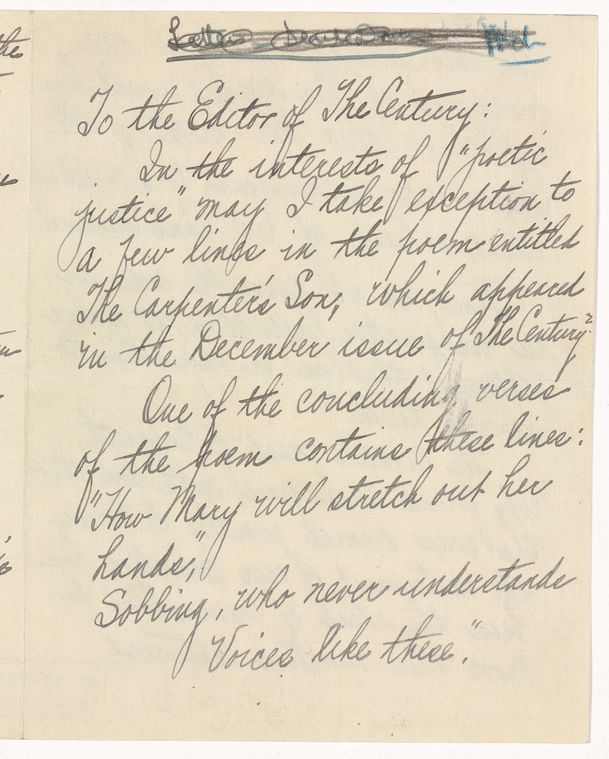 To the Editor of The Century:
In the interests of "poetic
justice" may I take exception to
a few lines in the poem entitled
The Carpenter's Son, which appeared
in the December issue of The Century?
One of the concluding verses
of the poem contains these lines:
"How Mary will stretch out her
hands,
Sobbing, who never understands
Voices like these".